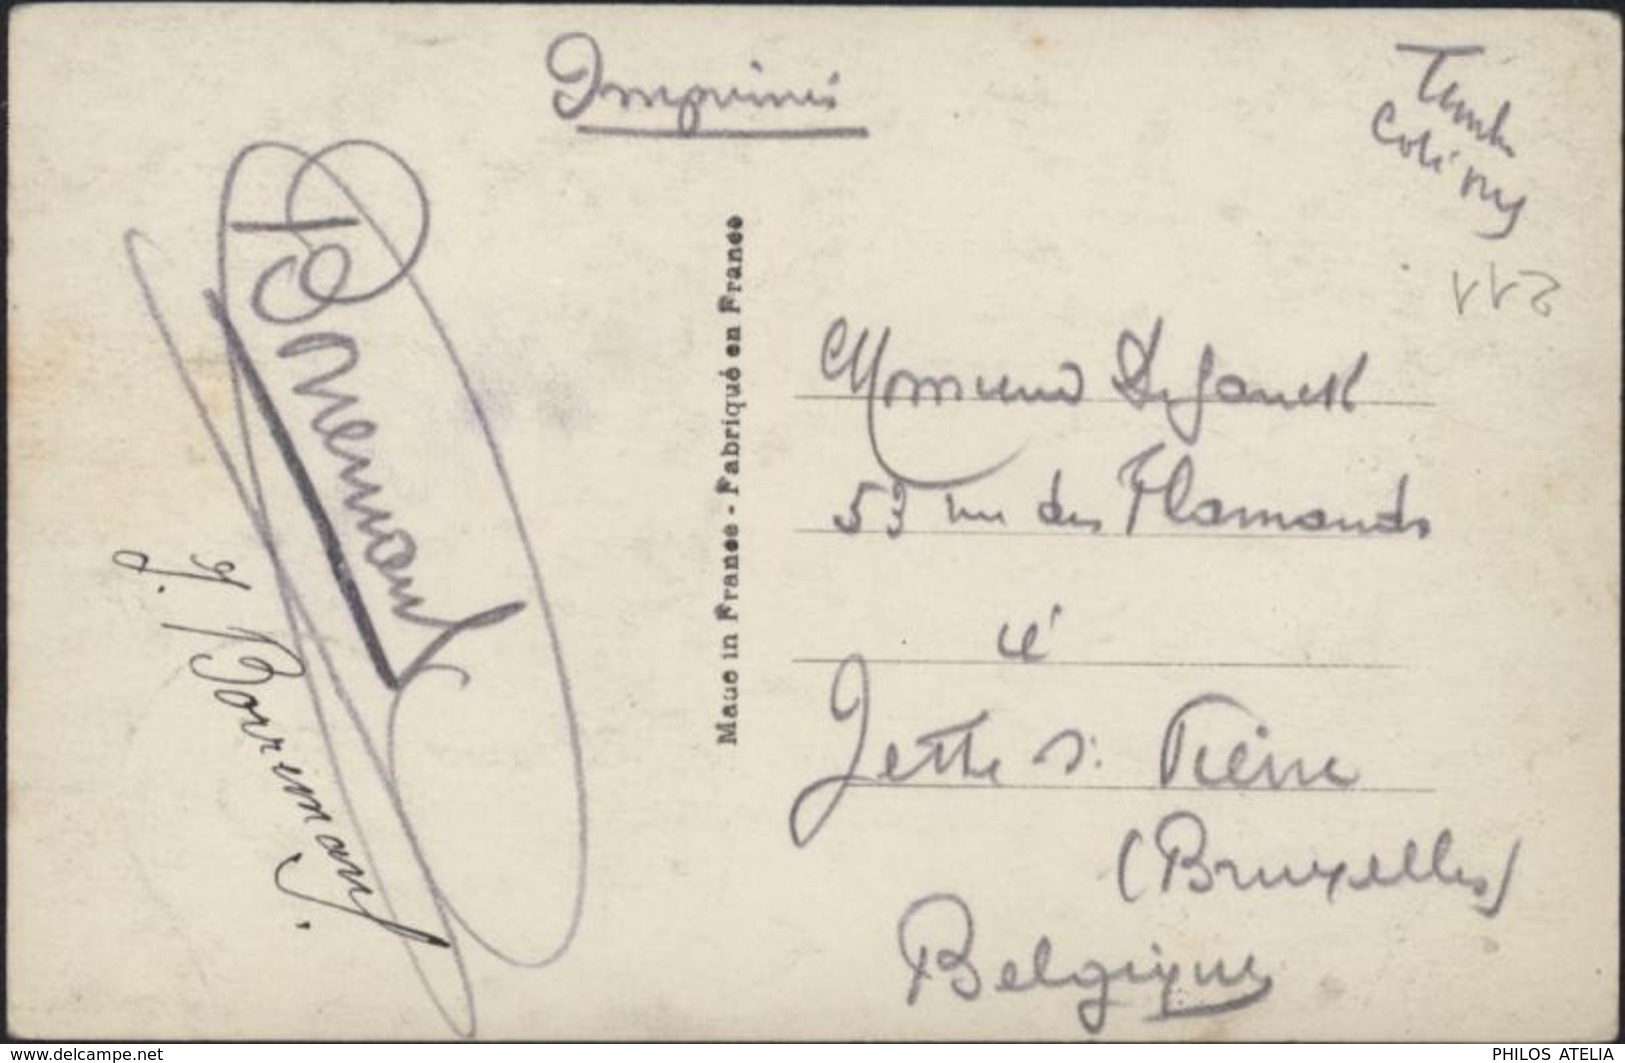 Imprimés
Timbre
Coté vue
J. Borremans.
Made in France - Fabriqué en France
Monsieur
53 rue des Flamands
à
Jette St Pierre
(Bruxelles)
Belgique
www.delcampe.net
PHILOS ATELIA